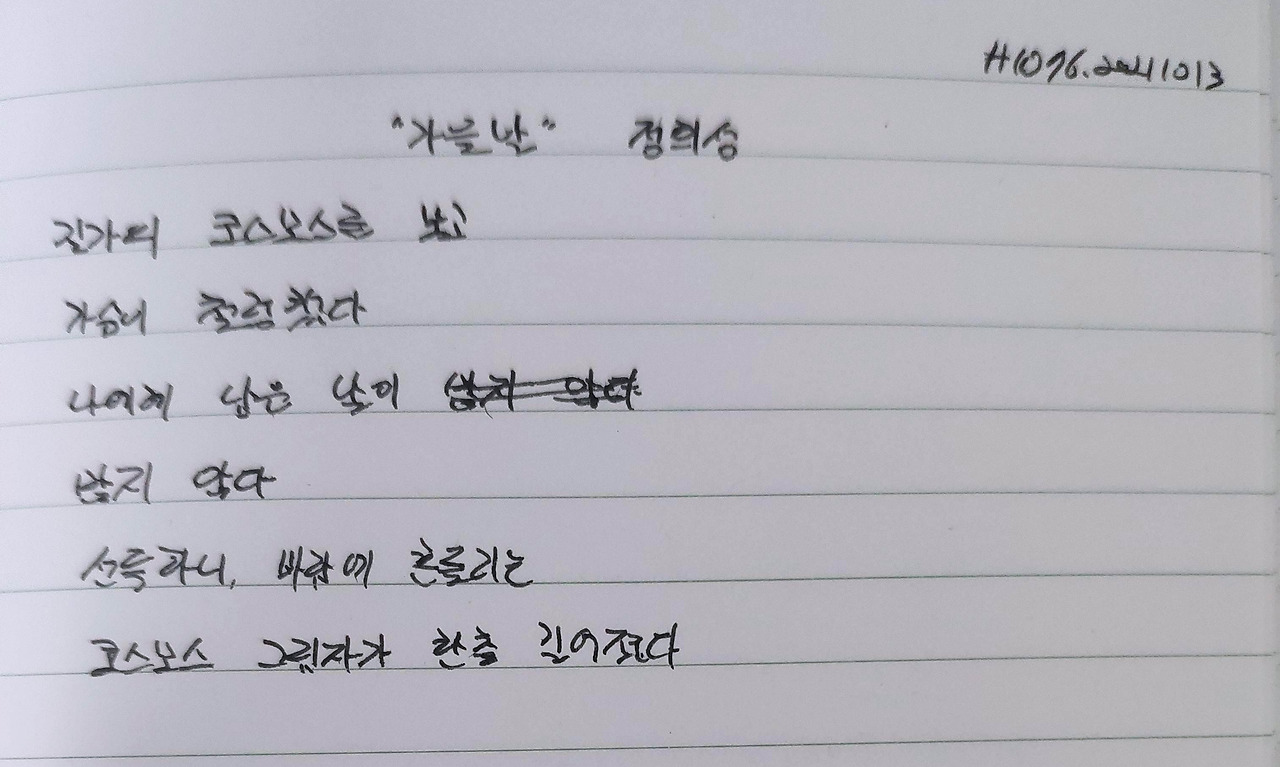 H1076.20241013
"가을날" 정희성
길가의 코스모스를 보고
가슴이 철렁했다
나에게 남은 날이 많지 않다
많지 않다
선득하니, 바람에 흔들리는
코스모스 그림자가 한층 길어졌다